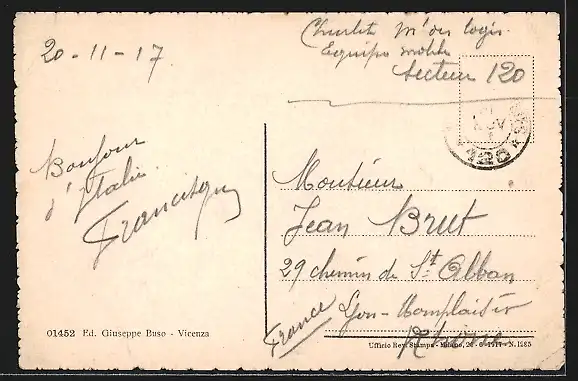 20-11-17
Mis des logis
Equipe mobile
Secteur 120
Bonjour
d'Italie
Francisque
Monsieur
Jean Brut
29 chemin de St Alban
Lyon-Monplaisir
Rhône
France
01452 Ed. Giuseppe Buso - Vicenza
Ufficio Rev. Stampa - Milano, 26-6-1917 - N. 1285